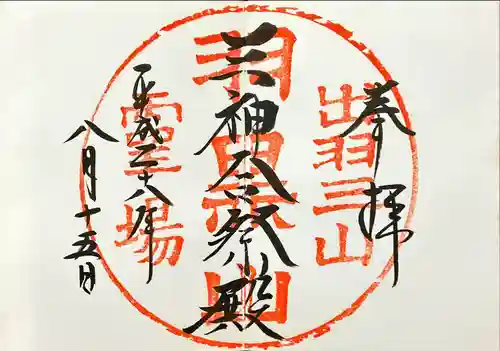 奉拝
三神合祭殿
平成二十八年
八月十五日
出羽三山
羽黒山
霊場